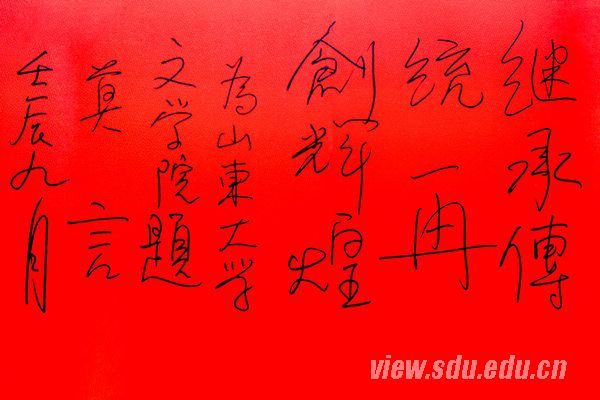 继承傳
統再
創輝煌
為山東大学
文学院題
莫言
壬辰九月
view.sdu.edu.cn